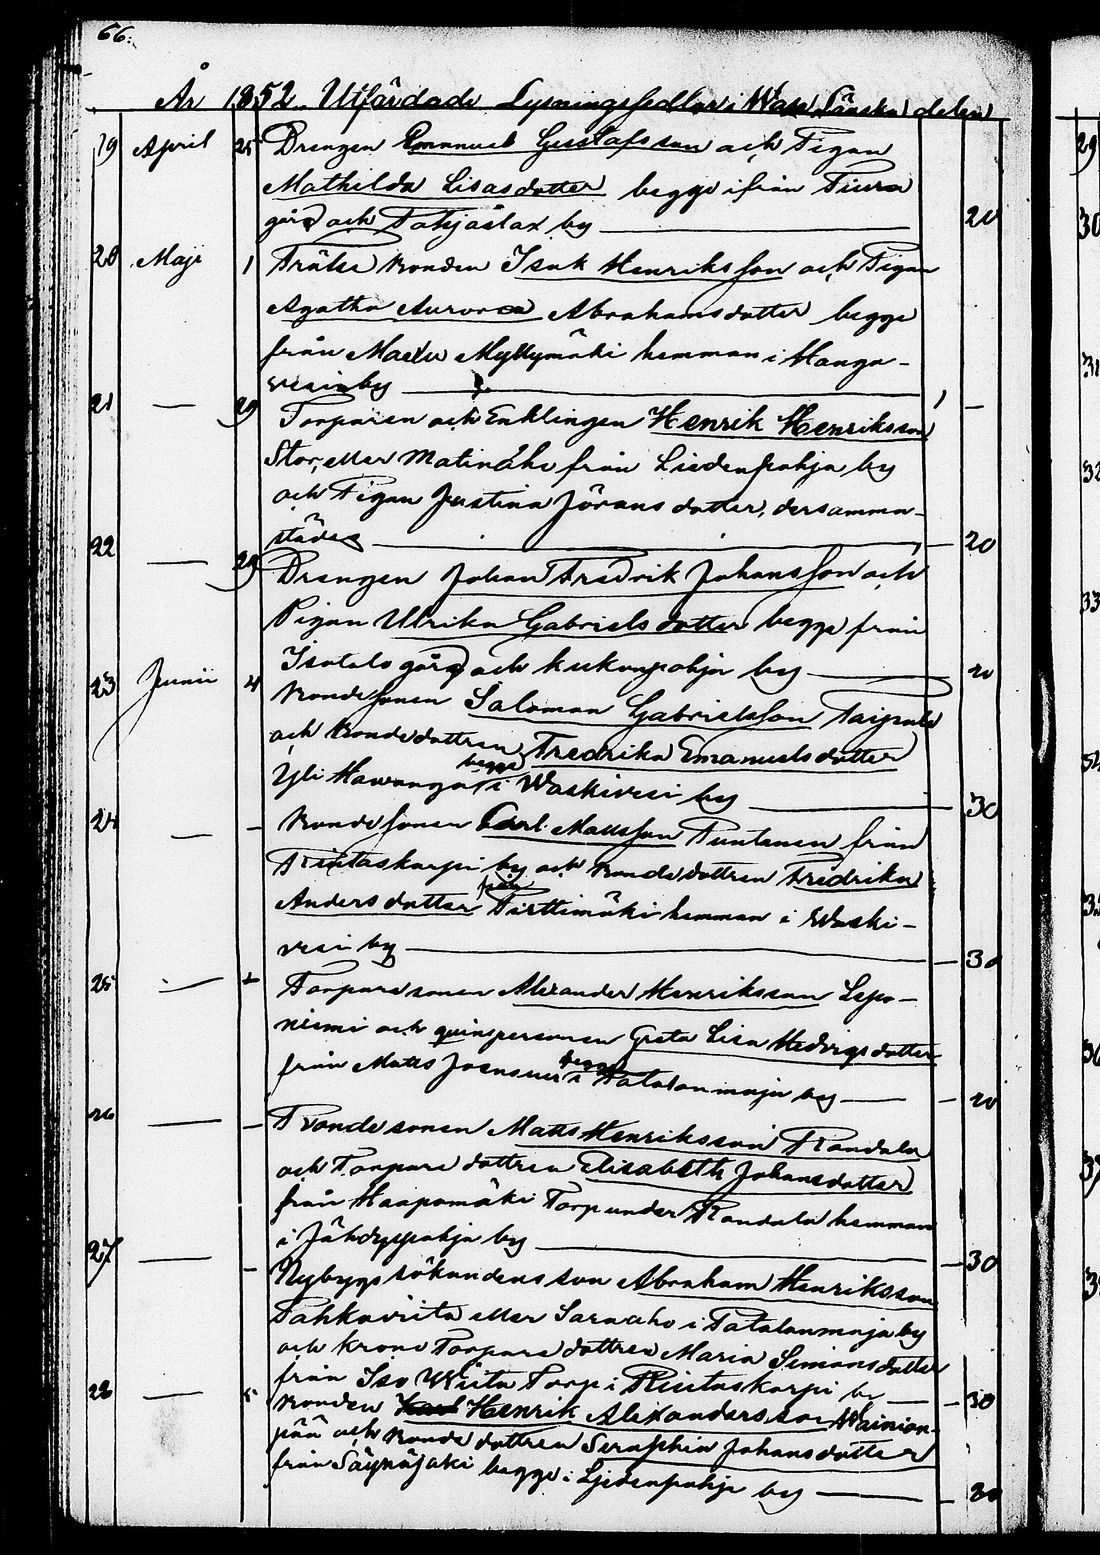 66.
År 1852 Utfärdade Lysningssedlar i Wasa Länska delen
19 April 25 Drengen Emanuel Gustafsson och Pigan
Mathilda Lisasdotter begge ifrån Piura
gård och Pohjaslax by 20
20 Maji 1 Frälse Bonden Isak Henriksson och Pigan
Agatha Aurora Abrahamsdotter begge
från Myllymäki hemman i Manga-
vesi by
21 — 29 Torparen och Enklingen Henrik Henriksson
Stor, eller Matinaho från Liedenpohja by
och Pigan Justina Jöransdotter, dersamma-
städes 20
22 — 29 Drengen Johan Fredrik Johansson och
Pigan Ulrika Gabrielsdotter begge från
Isotalo gård och Kukonpohja by 20
23 Junii 4 Bondesonen Salomon Gabrielsson Taipale
och Bondedottren Fredrika Emanuelsdotter
Yli Hawanga begge i Waskivesi by 30
24 — - Bondesonen Carl Mattsson Puntanen från
Riutaskorpi by och Bondedottren Fredrika
Andersdotter från Pirttimäki hemman i Waski-
vesi by 30
25 — - Torparesonen Alexander Henriksson Lepo-
niemi och qvinspersonen Greta Lisa Hedvigsdotter
från Matts Joensuu begge i Patalanmaja by 20
26 — - Bondesonen Matts Henriksson Randala
och Torparedottren Elisabeth Johansdotter
från Haapamäki Torp under Randala hemman
i Jähdyspohja by 30
27 — - Nybyggssökandens son Abraham Henriksson
Pahkaviita eller Saraaho i Patalanmaja by
och Krono Torparedottren Maria Simonsdotter
från Iso Wiita Torp i Riutaskorpi by 30
28 — 5 Bonden Henrik Alexandersson Wainion-
pää och Bondedottren Seraphia Johansdotter
från Säynäjoki begge i Ljedenpohja by 30
29
30
31
32
33
34
35
36
37